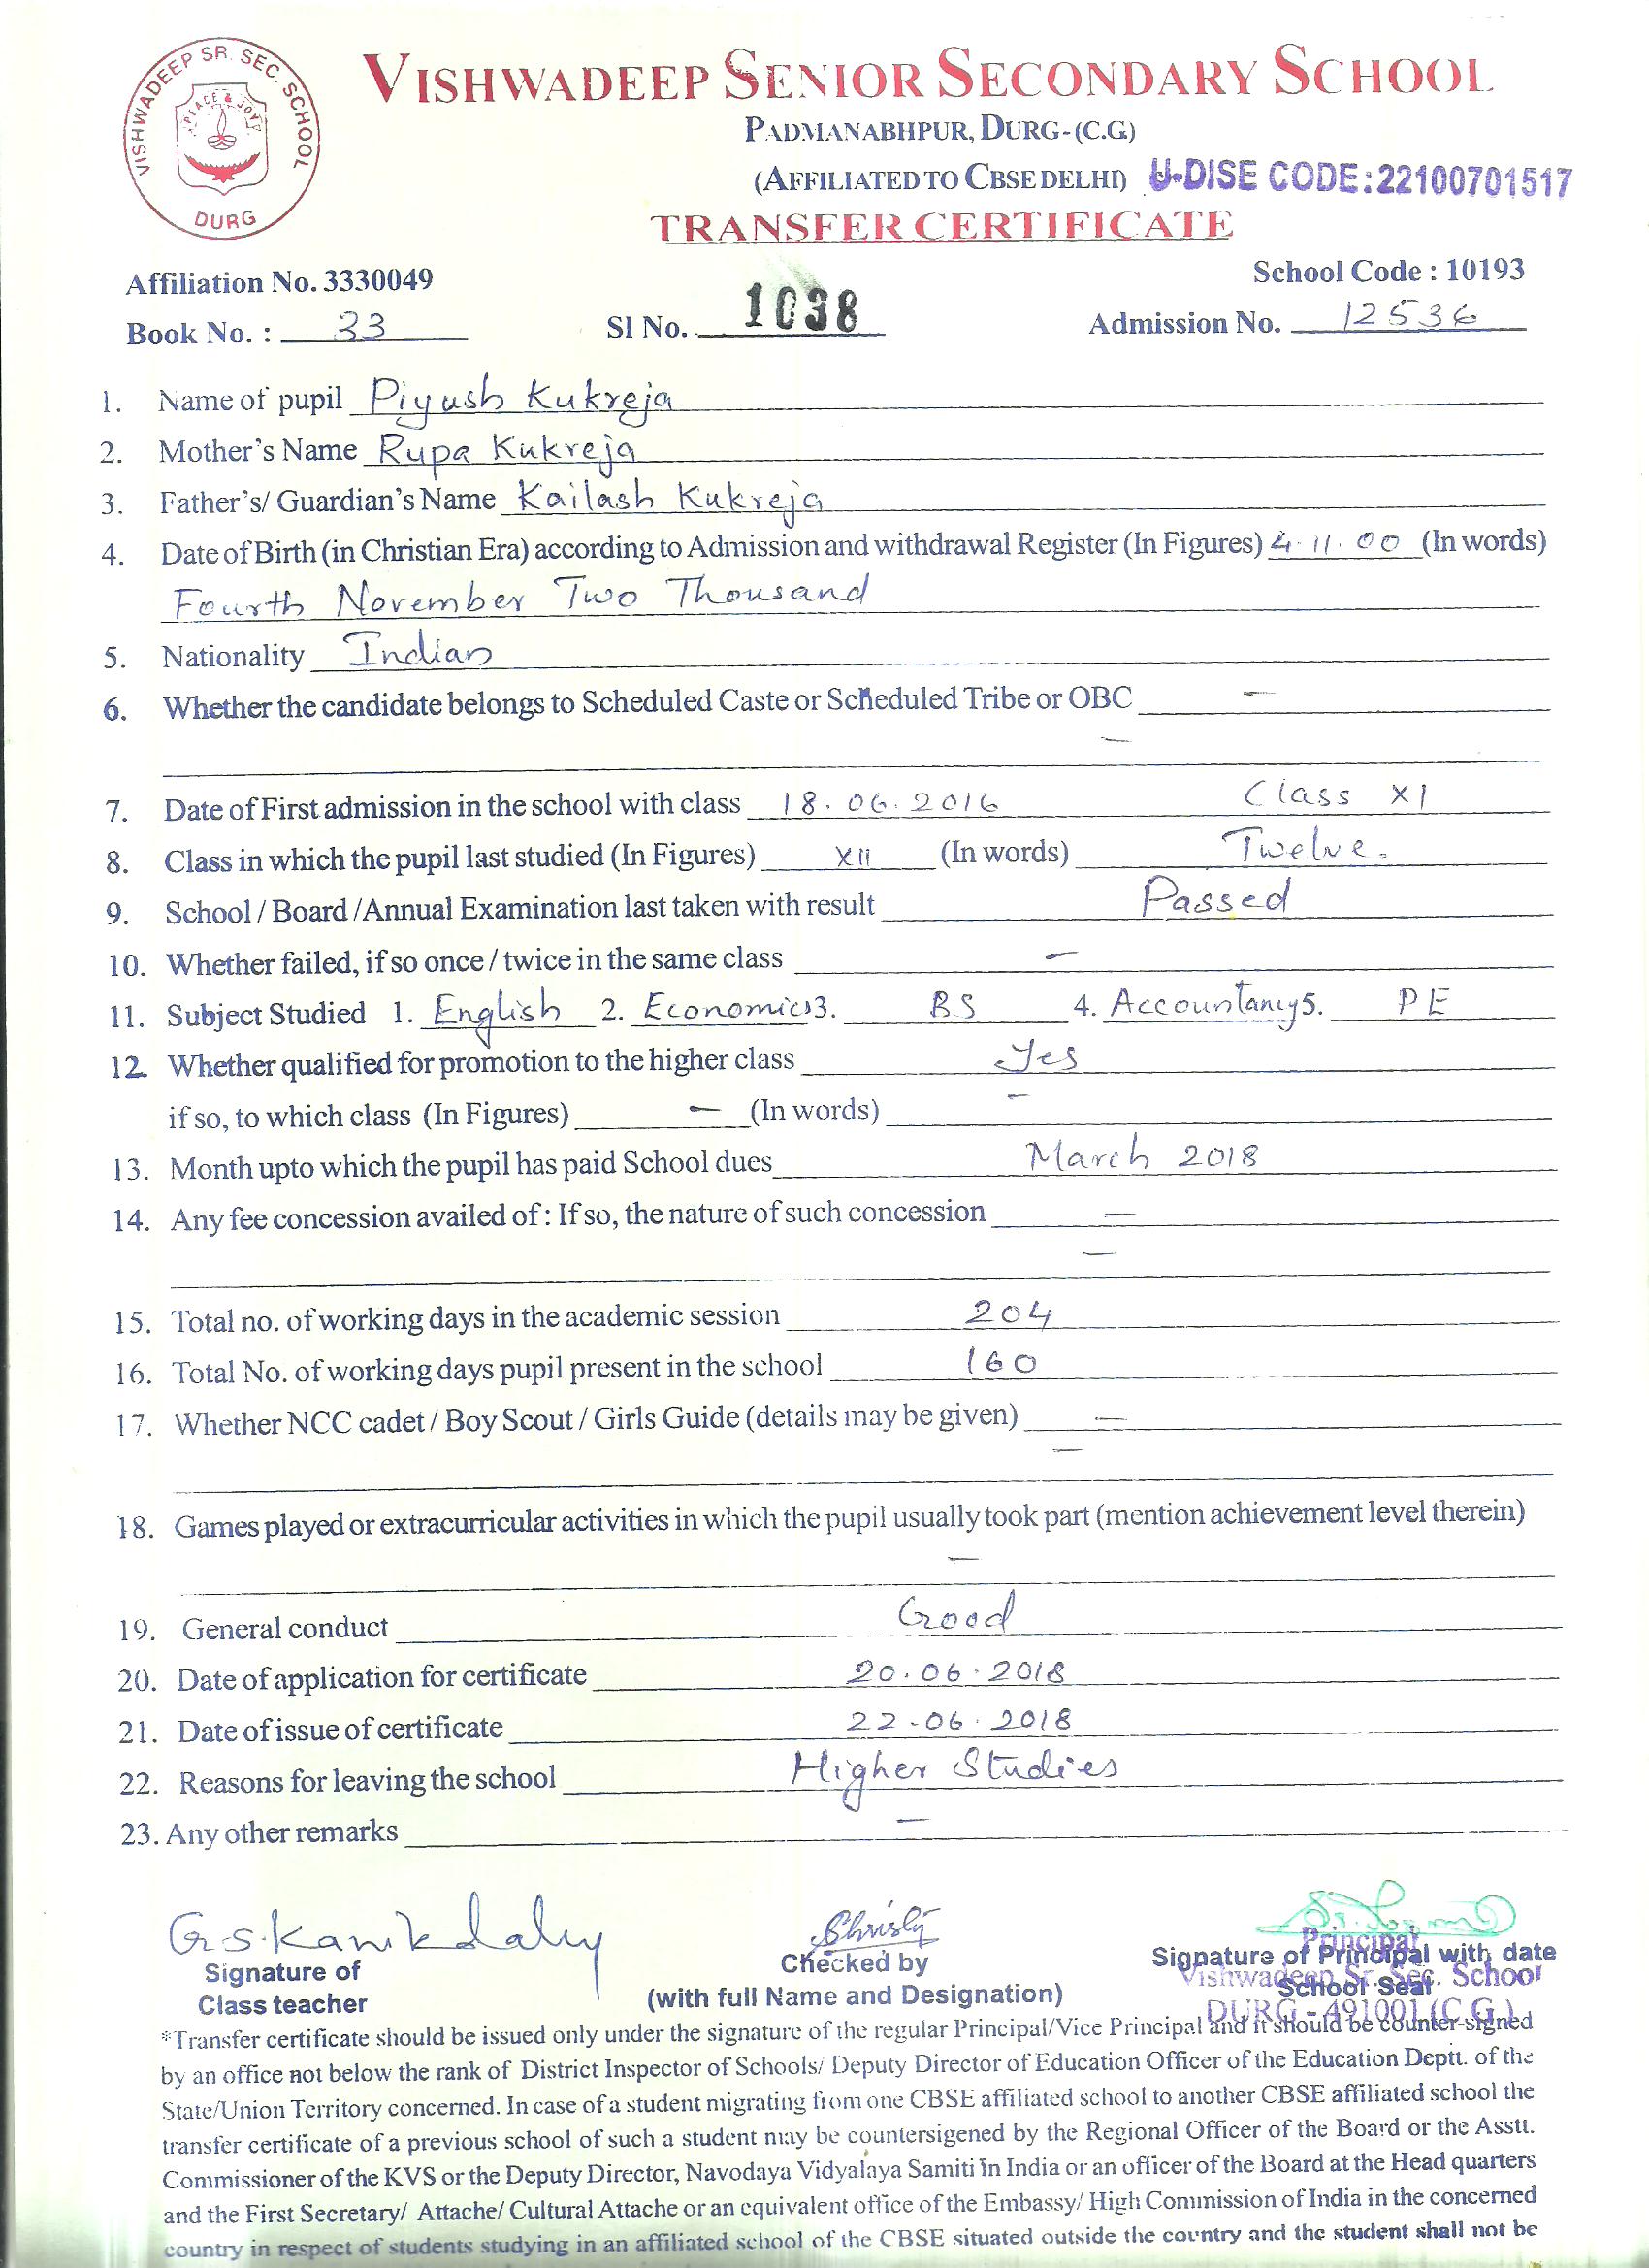 VISHWADEEP SR. SEC. SCHOOL
PEACE & JOY
DURG
VISHWADEEP SENIOR SECONDARY SCHOOL
PADMANABHPUR, DURG-(C.G)
(AFFILIATED TO CBSE DELHI) U-DISE CODE:22100701517
TRANSFER CERTIFICATE
Affiliation No. 3330049 School Code : 10193
Book No. : 33 Sl No. 1038 Admission No. 12536
1. Name of pupil Piyush Kukreja
2. Mother's Name Rupa Kukreja
3. Father's/ Guardian's Name Kailash Kukreja
4. Date of Birth (in Christian Era) according to Admission and withdrawal Register (In Figures) 4.11.00 (In words)
Fourth November Two Thousand
5. Nationality Indian
6. Whether the candidate belongs to Scheduled Caste or Scheduled Tribe or OBC –
–
7. Date of First admission in the school with class 18.06.2016 Class XI
8. Class in which the pupil last studied (In Figures) XII (In words) Twelve.
9. School / Board /Annual Examination last taken with result Passed
10. Whether failed, if so once / twice in the same class –
11. Subject Studied 1. English 2. Economics 3. BS 4. Accountancy 5. PE
12. Whether qualified for promotion to the higher class Yes
if so, to which class (In Figures) – (In words) –
13. Month upto which the pupil has paid School dues March 2018
14. Any fee concession availed of : If so, the nature of such concession –
–
15. Total no. of working days in the academic session 204
16. Total No. of working days pupil present in the school 160
17. Whether NCC cadet / Boy Scout / Girls Guide (details may be given) –
–
18. Games played or extracurricular activities in which the pupil usually took part (mention achievement level therein)
–
19. General conduct Good
20. Date of application for certificate 20.06.2018
21. Date of issue of certificate 22-06.2018
22. Reasons for leaving the school Higher Studies
23. Any other remarks –
Signature of Class teacher
Checked by
(with full Name and Designation)
Signature of Principal with date
School Seal
Principal
Vishwadeep Sr. Sec. School
DURG - 491001 (C.G.)
*Transfer certificate should be issued only under the signature of the regular Principal/Vice Principal and it should be counter-signed
by an office not below the rank of District Inspector of Schools/ Deputy Director of Education Officer of the Education Deptt. of the
State/Union Territory concerned. In case of a student migrating from one CBSE affiliated school to another CBSE affiliated school the
transfer certificate of a previous school of such a student may be countersigned by the Regional Officer of the Board or the Asstt.
Commissioner of the KVS or the Deputy Director, Navodaya Vidyalaya Samiti in India or an officer of the Board at the Head quarters
and the First Secretary/ Attache/ Cultural Attache or an equivalent office of the Embassy/ High Commission of India in the concerned
country in respect of students studying in an affiliated school of the CBSE situated outside the country and the student shall not be